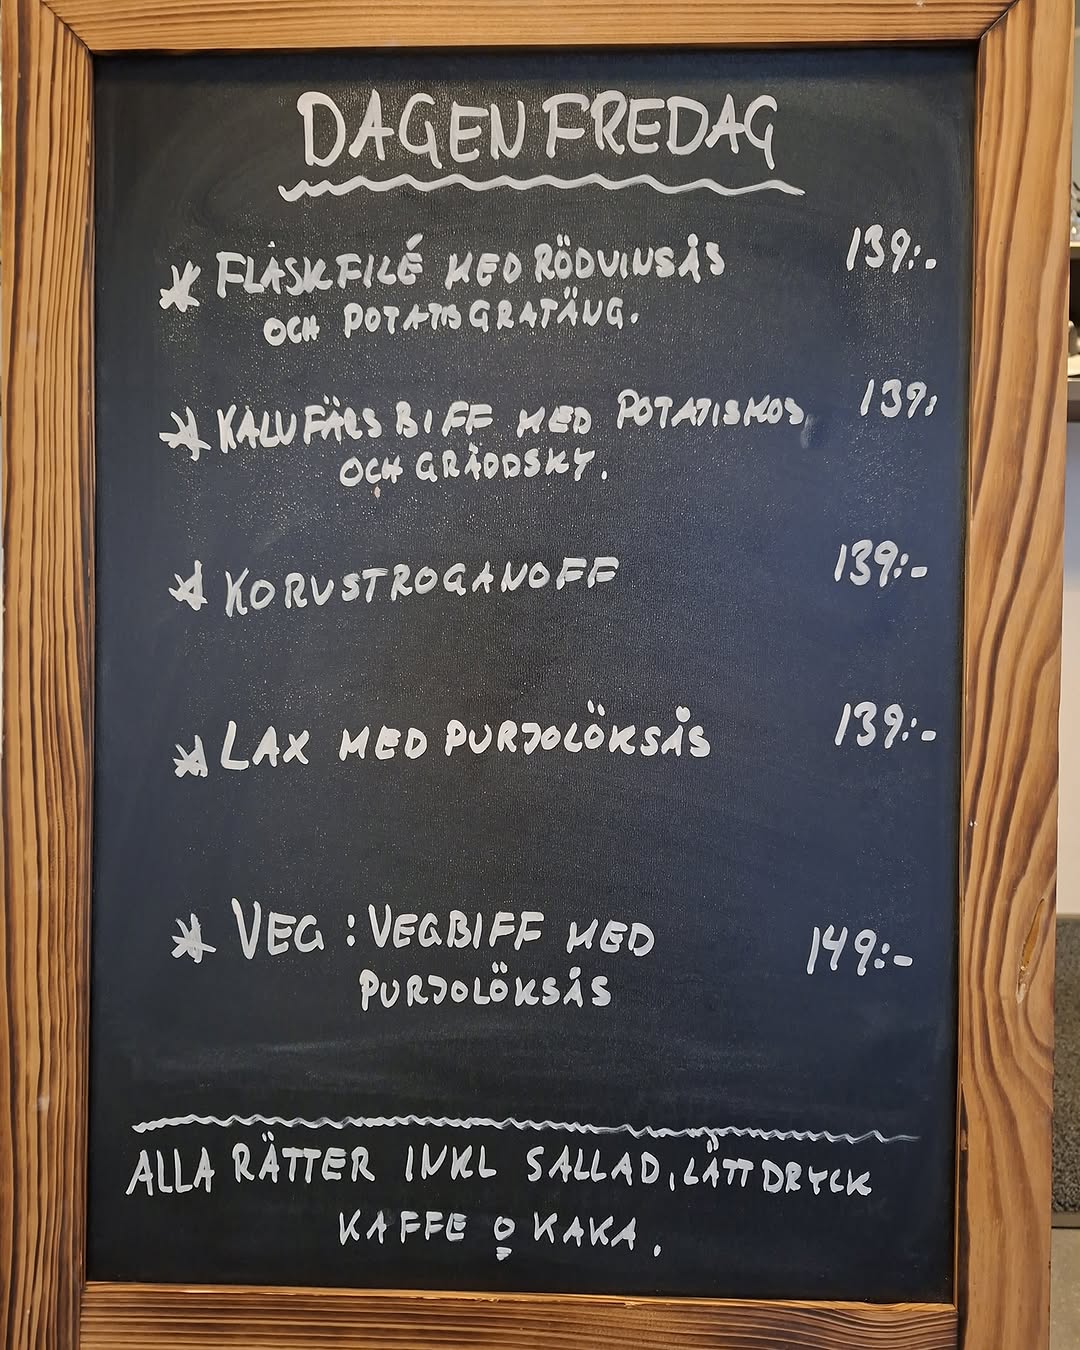 DAGEN FREDAG
* FLÄSKFILÉ MED RÖDVINSÅS 139:-
OCH POTATISGRATÄNG.
* KALVFÄRSBIFF MED POTATISMOS, 139:
OCH GRÄDDSKY.
* KORVSTROGANOFF 139:-
* LAX MED PURJOLÖKSÅS 139:-
* VEG : VEGBIFF MED 149:-
PURJOLÖKSÅS
ALLA RÄTTER INKL SALLAD, LÄTTDRYCK
KAFFE O KAKA.